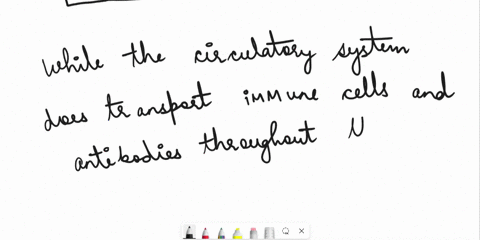 while the circulatory system
does transport immune cells and
antibodies throughout